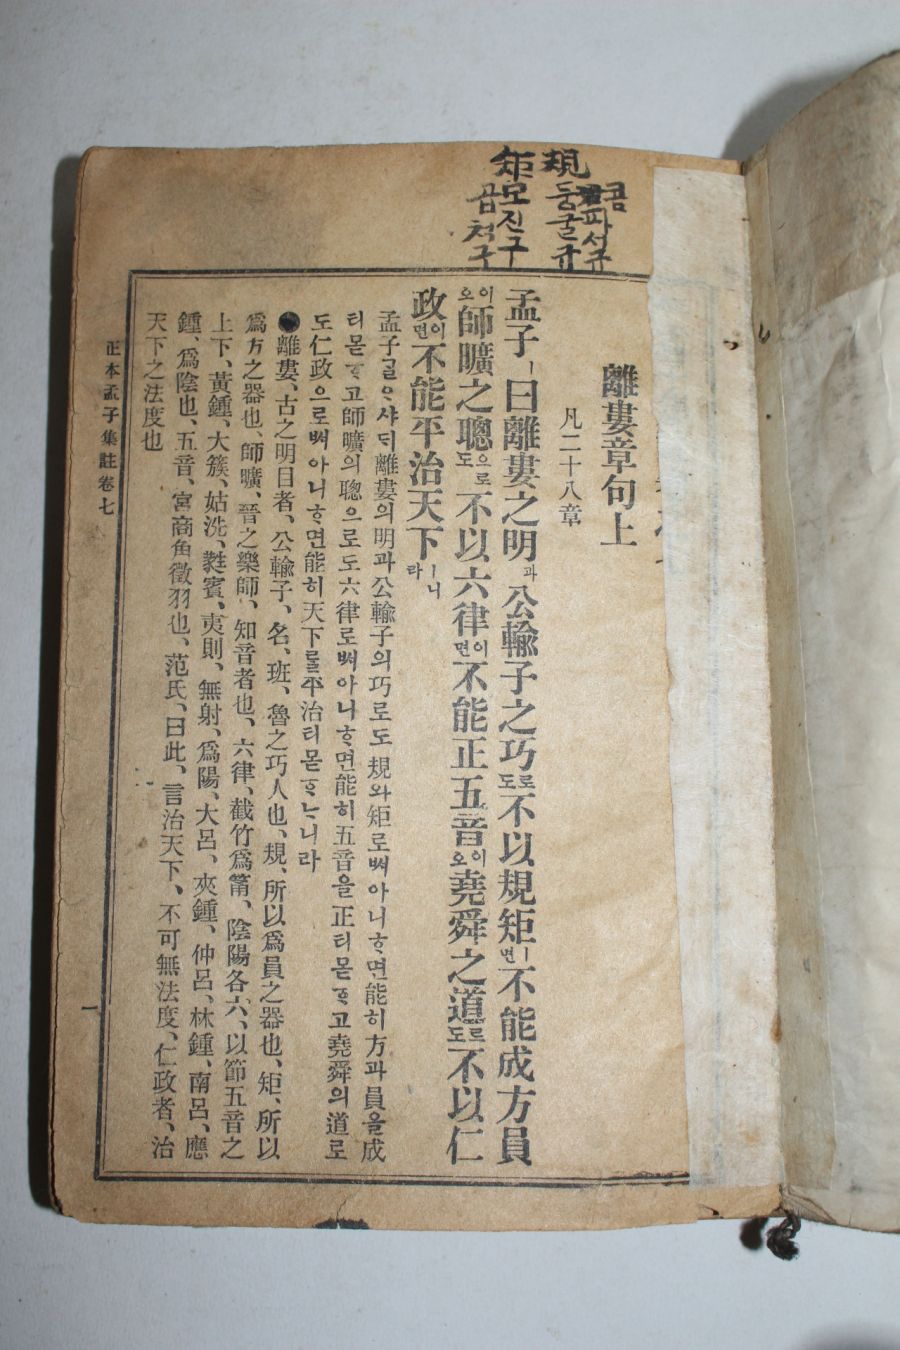 規 둥굴규 콤파서규
矩 모진구 곱척구
離婁章句上
凡二十八章
孟子ㅣ曰離婁之明과公輸子之巧로도不以規矩ㅣ면不能成方員
이오師曠之聰으로도不以六律이면不能正五音이오堯舜之道로도不以仁
政이면不能平治天下ㅣ니라
孟子ᄀᆞᆯᄋᆞ샤ᄃᆡ離婁의明과公輸子의巧로도規와矩로ᄡᅥ아니ᄒᆞ면能히方과員을成
티몯ᄒᆞ고師曠의聰으로도六律로ᄡᅥ아니ᄒᆞ면能히五音을正티몯ᄒᆞ고堯舜의道로
도仁政으로ᄡᅥ아니ᄒᆞ면能히天下ᄅᆞᆯ平治티몯ᄒᆞᄂᆞ니라
●離婁、古之明目者、公輸子、名、班、魯之巧人也、規、所以爲員之器也、矩、所以
爲方之器也、師曠、晉之樂師、知音者也、六律、截竹爲筩、陰陽各六、以節五音之
上下、黃鍾、大簇、姑洗、蕤賓、夷則、無射、爲陽、大呂、夾鍾、仲呂、林鍾、南呂、應
鍾、爲陰也、五音、宮商角徵羽也、范氏、曰此、言治天下、不可無法度、仁政者、治
天下之法度也
正本孟子集註卷七
一